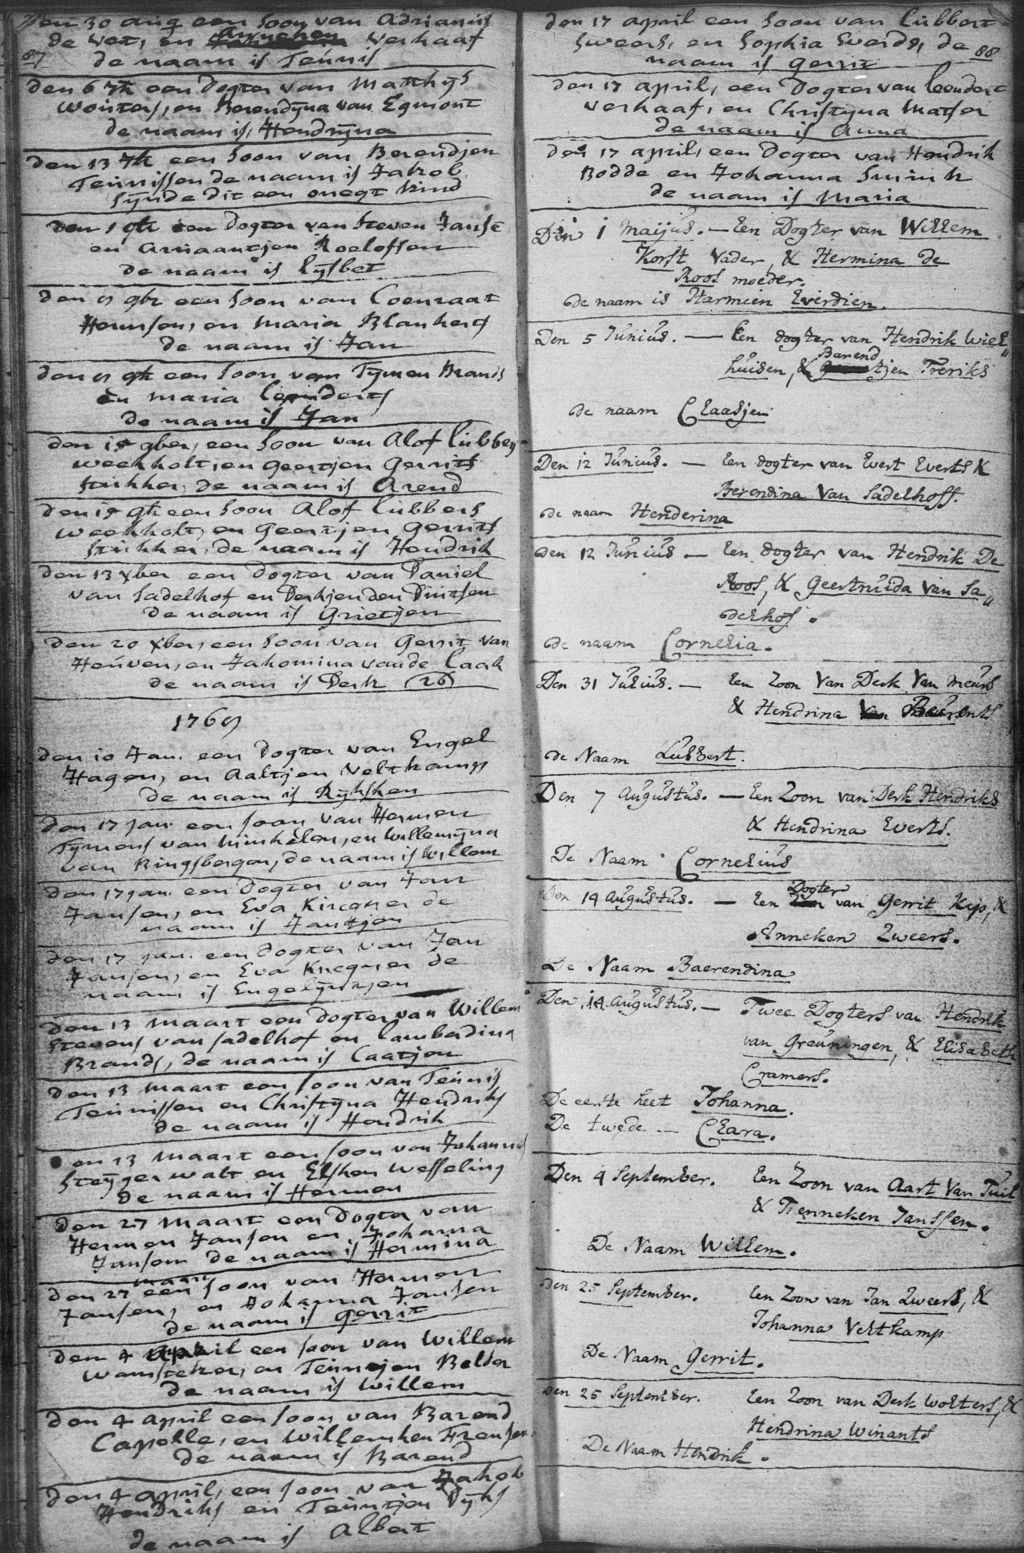 den 30 aug een soon van Adrianus
de wet, en Anneken Verhaaf
de naam is Teunis
87
den 6 7br een dogter van Matthijs
Wouters, en Berendyna van Egmont
de naam is, Hendryna
den 13 7br een soon van Berendjen
Teunissen de naam is Jakob
synde dit een onegt kind
den 1 9br een dogter van Steven Janse
en Armaantjen Roelofsen
de naam is Lysbet
den 9br een soon van Coenraat
Hermsen, en Maria Blanberg
de naam is Jan
den 9br een soon van Tymen Brands
en Maria Leenderts
de naam is Jan
den 15 9ber, een soon van Alof Lubbers
weekholt, en geertjen Gerrits
Stukker, de naam is Arend
den 15 9br een soon Alof Lubbers
weekholt, en Geertjen Gerrits
Stukker, de naam is Hendrik
den 13 Xber een dogter van Daniel
van Sadelhof en Derkjen den Duitsen
de naam is Grietjen
den 20 Xber, een soon van Gerrit van
Heuven, en Jakomina vande Caak
de naam is Derk (26)
1769
den 10 Jan. een dogter van Engel
Hagen, en Aaltjen Veltkamp
de naam is Ryksken
den 17 jan. een soon van Hermen
Tymens van Winkelen, en Willemyna
van Ringsbergen, de naam is Willem
den 17 jan. een dogter van Jan
Jansen, en Eva Kircgner de
naam is Jantjen
den 17 jan. een dogter van Jan
Jansen, en Eva Kircgner de
naam is Engelyntjen
den 13 maart een dogter van Willem
Stevens van Sadelhof en Lambadina
Brands, de naam is Caatjen
den 13 maart een soon van Teunis
Teunissen en Christyna Hendriks
de naam is Hendrik
den 13 maart een soon van Johannes
Steygerwalt en Elsken Wesseling
de naam is Hermen
den 27 maart een dogter van
Hermen Jansen en Johanna
Jansen de naam is Hermina
den 27 maart een soon van Hermen
Jansen, en Johanna Jansen
de naam is Gerrit
den 4 april een soon van Willem
Wamsteker, en Teuntjen Belder
de naam is Willem
den 4 april een soon van Barend
Capelle, en Willemken Frensen
de naam is Barend
den 4 april, een soon van Jakob
Hendriks en Teuntjen Dyks
de naam is Albert
den 17 april een soon van Lubbert
Sweers, en Sophia Everds, de
naam is Gerrit
88
den 17 april, een dogter van Leendert
Verhaaf, en Christyna Matser
de naam is Anna
den 17 april, een dogter van Hendrik
Bodde en Johanna Smink
de naam is Maria
Den 1 Maijus. — Een Dogter van Willem
Korst Vader, & Hermina de
Roos moeder.
de naam is Harmeen Everdien.
Den 5 Junius. — Een dogter van Hendrik Wiel„
huisen, & Barendtjen Freriks
de naam Claasjen
Den 12 Junius. — Een dogter van Evert Everts &
Berendina Van Sadelhoff.
de naam Henderina
den 12 Junius — Een dogter van Hendrik De
Roos, & Geertruida van Sa„
delhof.
de naam Cornelia.
Den 31 Julius. — Een Zoon Van Derk Van Meurs
& Hendrina Beurents
de Naam Lubbert.
Den 7 Augustus. — Een Zoon van Derk Hendriks
& Hendrina Everts.
De Naam Cornelius
Den 14 Augustus. — Een Dogter van Gerrit Kejo, &
Anneken Zweers.
De Naam Baerendina
Den 14 Augustus. — Twee Dogters van Hendrik
van Greuningen, & Elisabeth
Cramers.
De eerste heet Johanna.
De twede — Clara.
Den 4 September. Een Zoon van Aart Van Tuil
& Fenneken Janssen.
De Naam Willem.
den 25 September. Een Zoon van Jan Zweers, &
Johanna Veltkamp
De Naam Gerrit.
den 25 September. Een Zoon van Derk Wolters, &
Hendrina Winants
De Naam Hendrik.